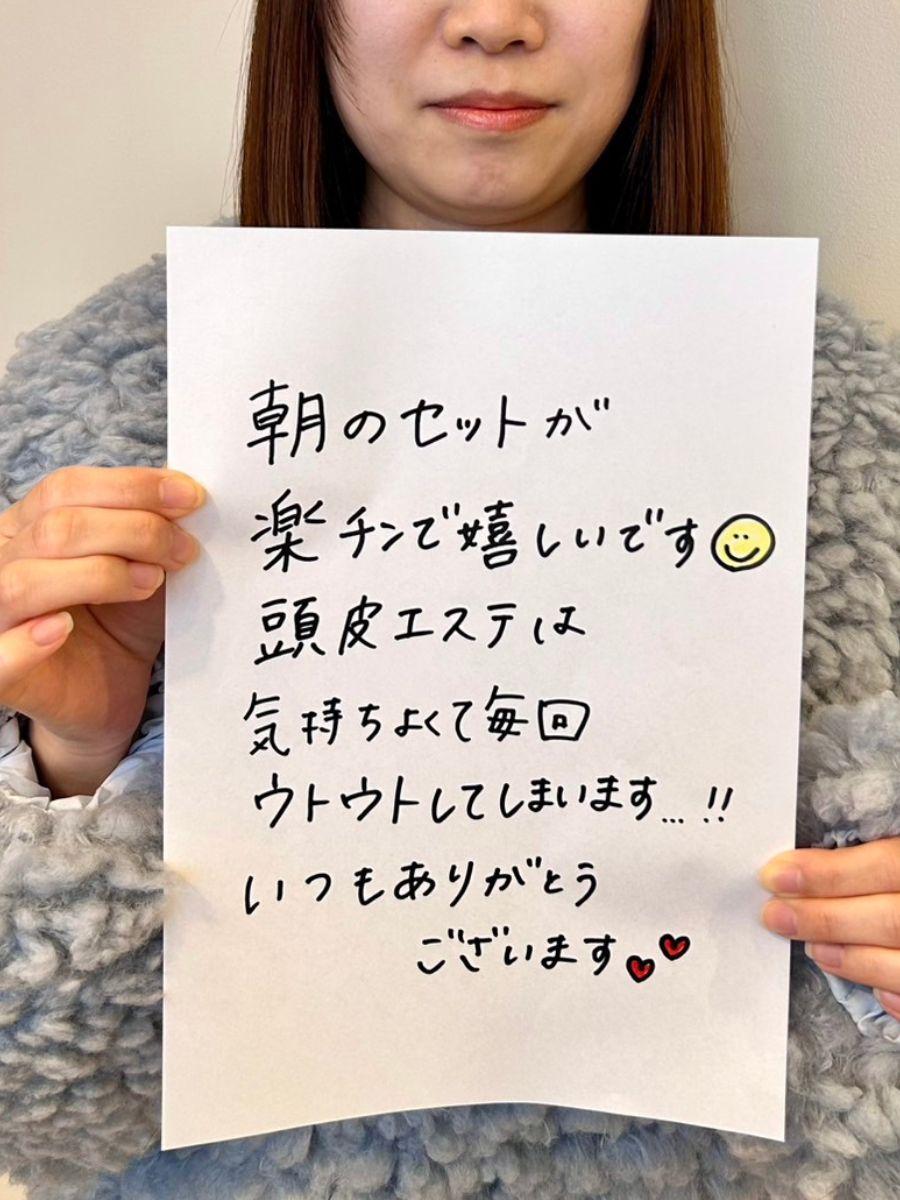 朝のセットが
楽チンで嬉しいです
頭皮エステは
気持ちよくて毎回
ウトウトしてしまいます...!!
いつもありがとう
ございます